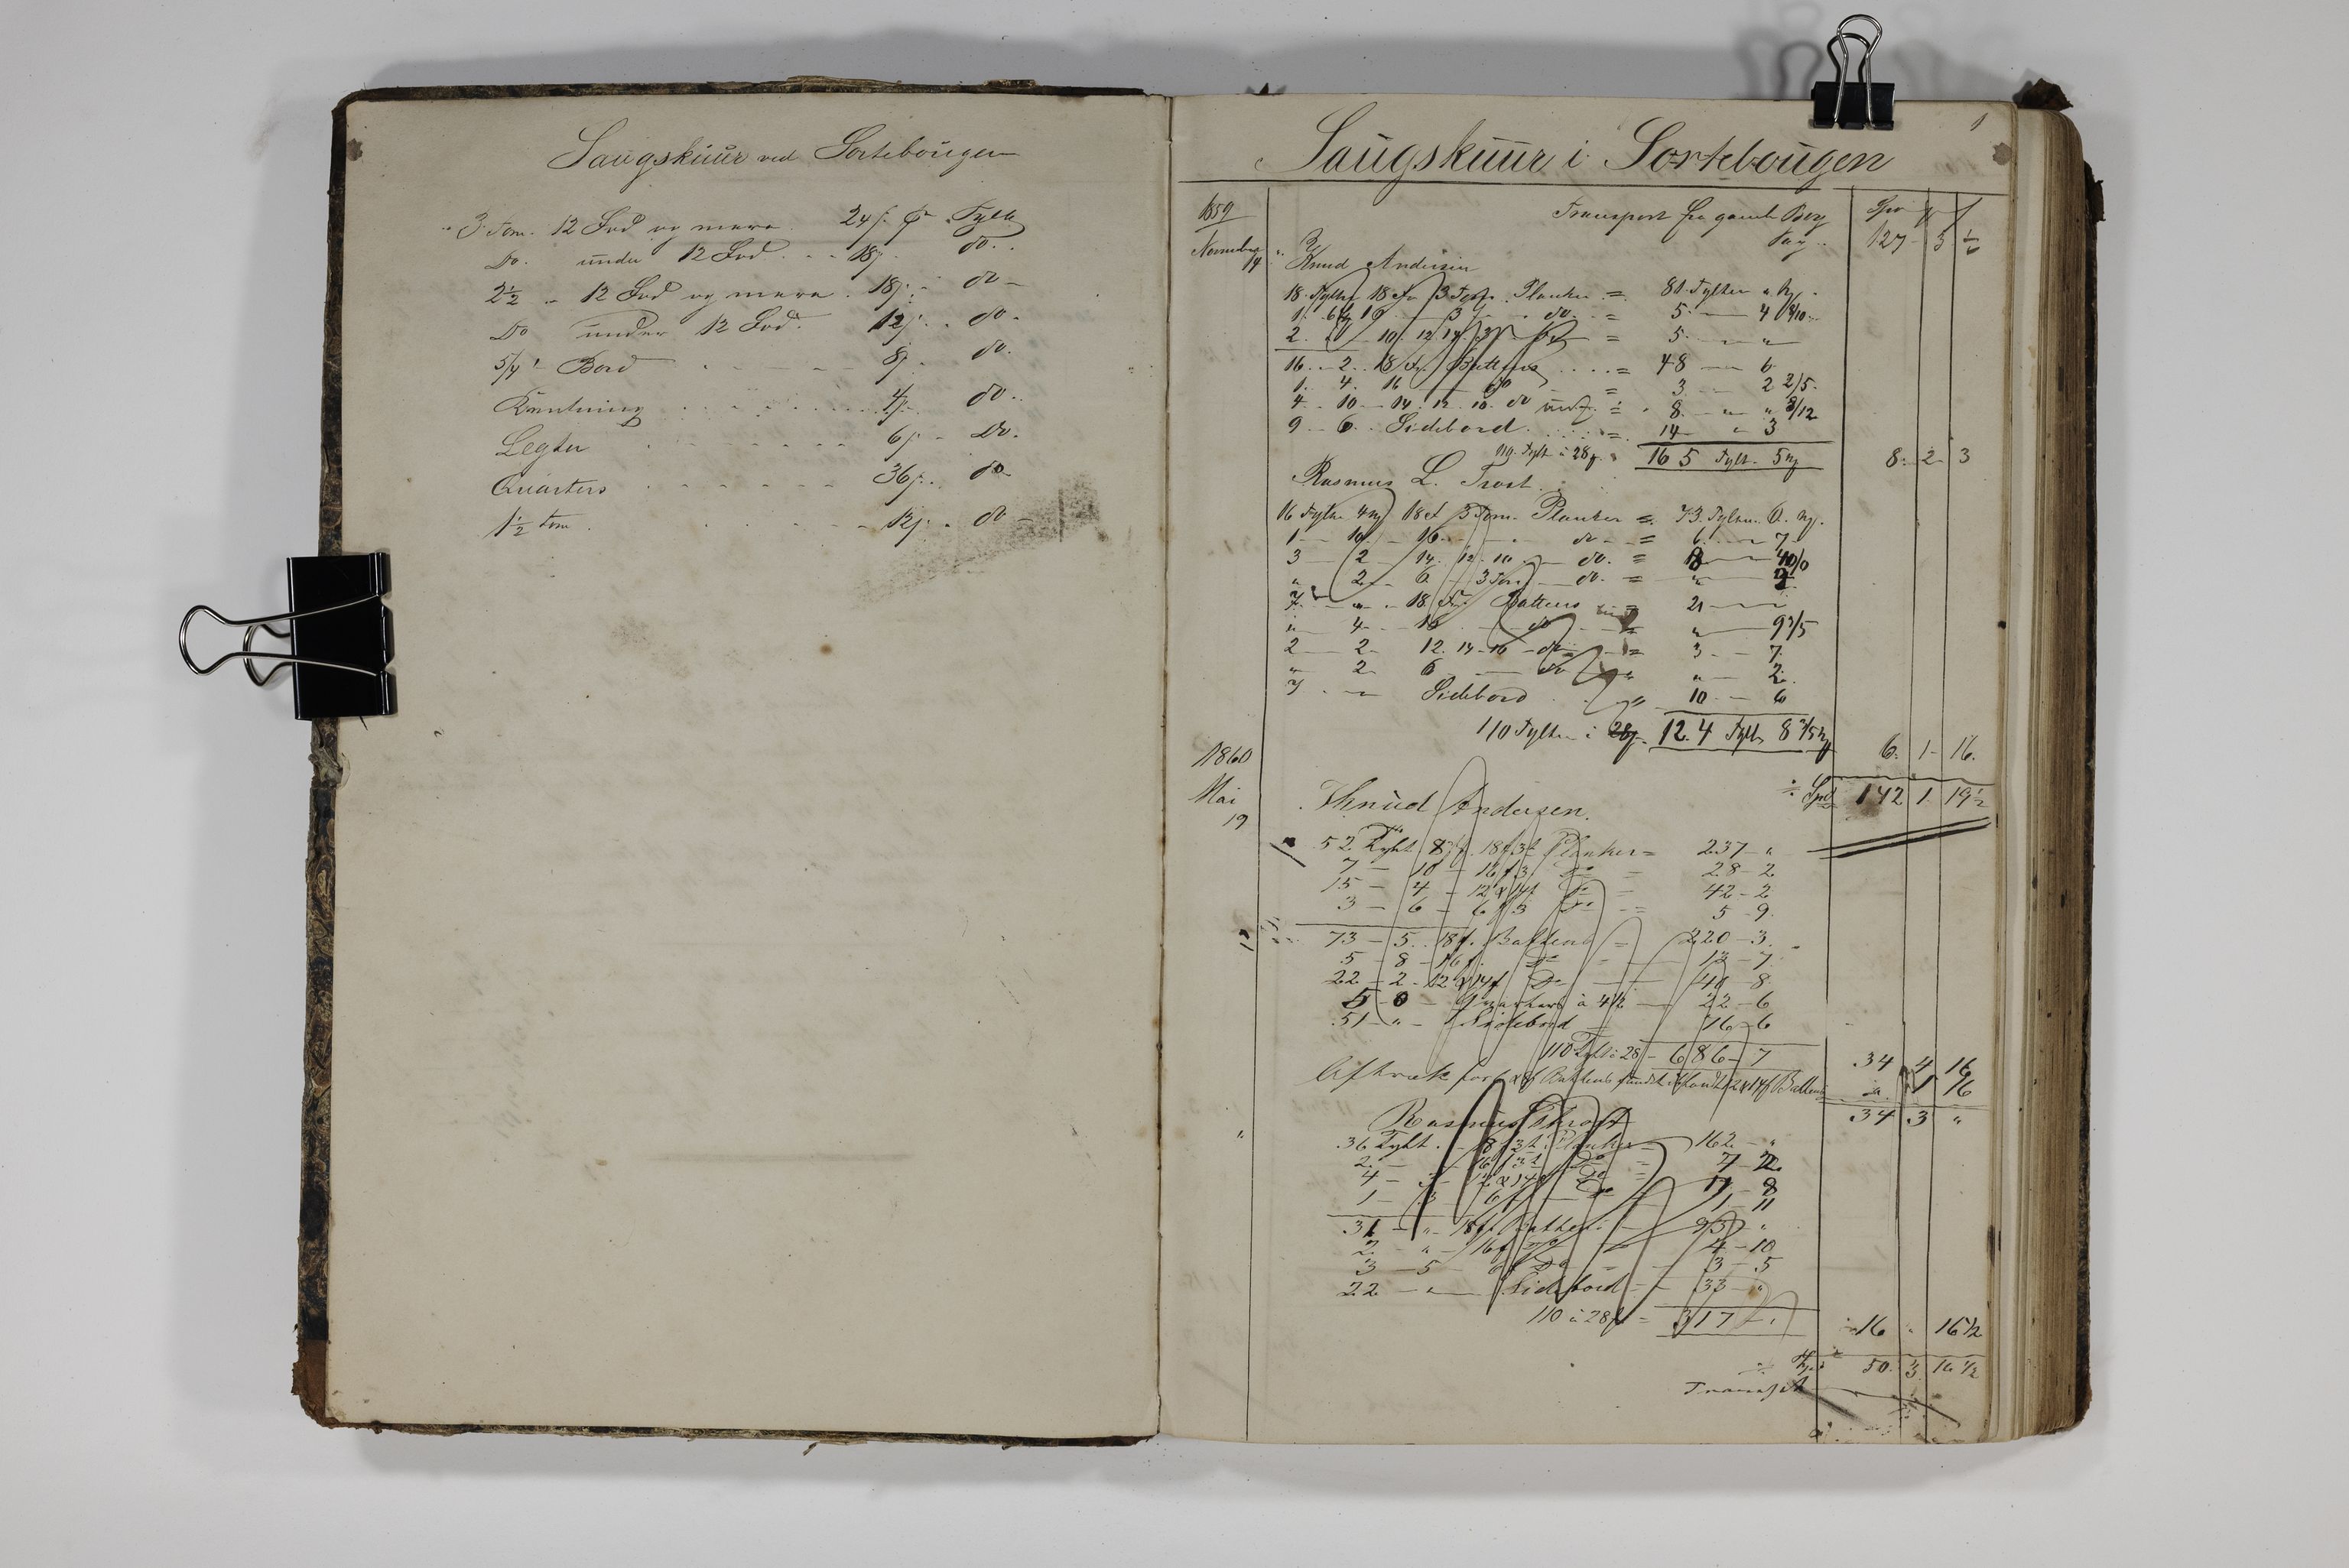 Saugskuur ved Sortebougen
3 Tom. 12 Fod og mere 24 f. pr Tylt
Do. under 12 Fod. 18 f. do.
2 1/2 " 12 Fod og mere. 18 f. do
Do under 12 Fod. 12 f. do.
5/4" Bord 8 f. do.
4 f. do.
Legter 6 f. Do.
Quarters 36 f. do
1 1/2 tom. 12 f. do
1
Saugskuur i Sortebougen
1859 Transport fra gamle Bog
127 3
14 Knud Andersen
18 Tylter 18 3 Tom. Planker = 81 Tylter
1. 16 3 do. = 5 4
2. 10 12 14 = 5 "
16. 2. 18 Battens = 48 6
1. 4. 16 do = 3 2 2/5
4 10 14. 12. 10. do = 8 " /12
9 6 Sidebord = 14 3
110 Tylt a 28 f. 165 Tylt. 5 8. 2 3
Rasmus L. Trost.
16 Tylter 4 18 3 Tom. Planker = 73 Tylter 6
1 10 16 do = 6 7
3 2 14. 12. 10 do. =
" 2 6 3 Tom do. = " 2
7 " 18 Battens 21
" 4 16 do " 9 3/5
2 2 12. 14 16 do = 3 7
" 2 6 do " 2
7 Sidebord 10 6
110 Tylter a 28 f. 124 Tylt 8 3/5 6. 1 16.
1860 142 1. 19 1/2
Mai Knud Andersen.
19
52 Tylt 8 18 f. 3 t Planker = 237 "
7 10 16 f 3 Do = 28 2
15 4 12 x 14 f Do 42 2
3 6 6 f 3 Do = 5 9
73 5. 18 f. Battens = 220 3.
5 8 16 f. Do 13 7
22 2 12 x 14 f Do 40 8
5 0 Quarters a 4 1/2 22 6
51 " Sidebord 76 6
110 Tylt a 28 686 7 34 4 16
Aftræk for Battens Battens " 1 16
34 3 "
Rasmus Throst
36 Tylt. 18 f. 3 t. Planker 162 "
2 16 f 3 t Do 7
4 12 x 14 f Do 11 8
1 3 6 f Do 1 11
31 " 18 f. Battens 93 "
2 " 16 f Do 4 10
3 5 6 f Do 3 5
22 " Sidebord 33 "
110 a 28 f = 317 16 " 16 1/2
50. 3 16 1/2
Transpt